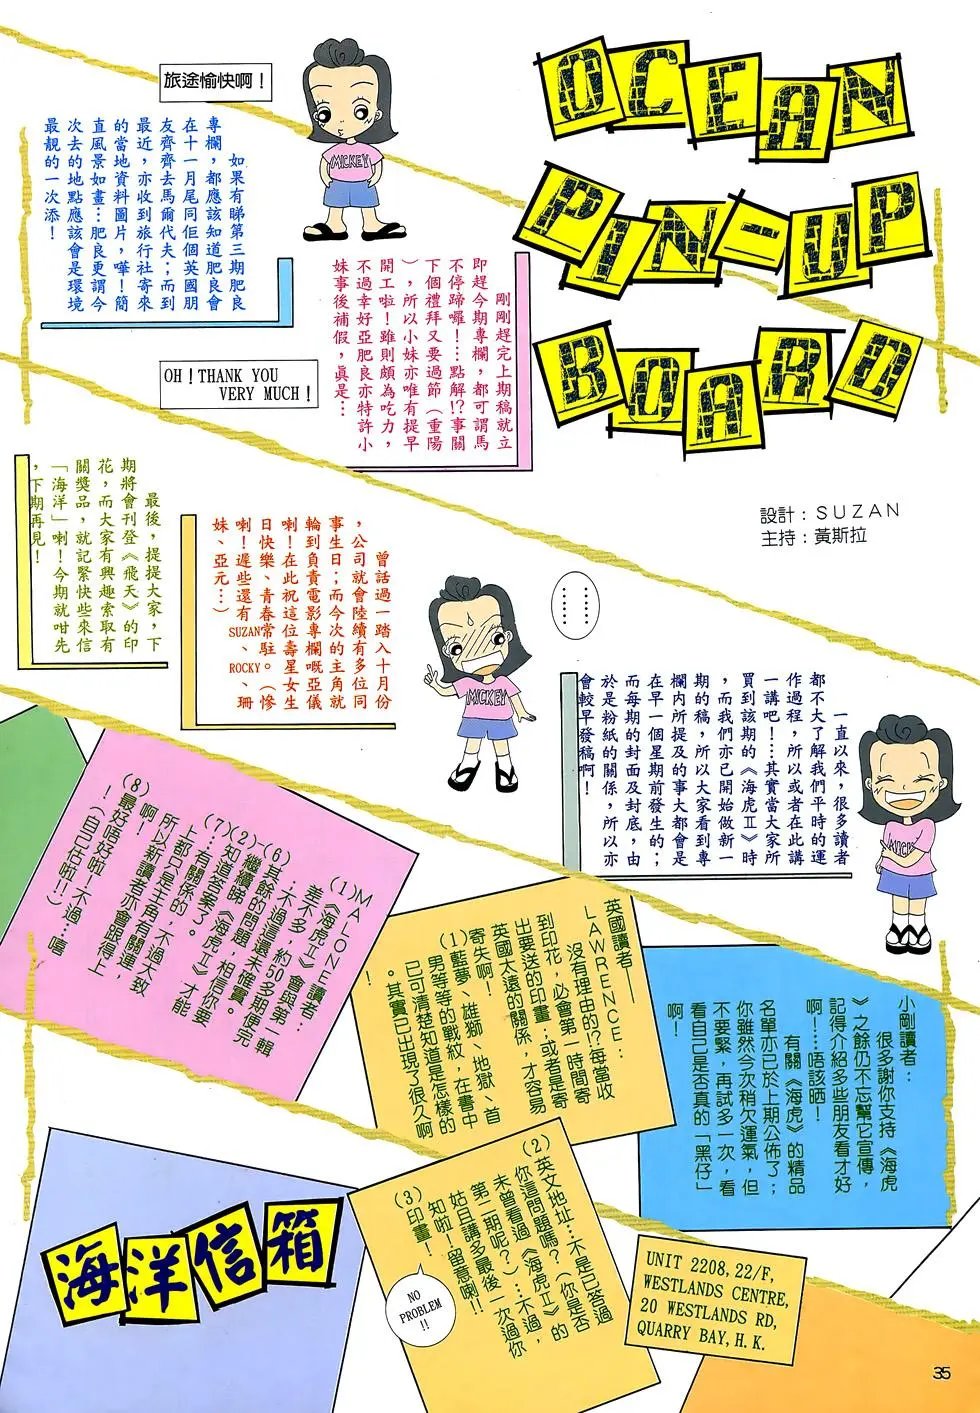 OCEAN
PIN-UP
BOARD
設計：SUZAN
主持：黃斯拉
旅途愉快啊！
如果有睇第三期肥良
專欄，都應該知道肥良會
在十一月尾同佢個英國朋
友齊齊去馬爾代夫；而到
最近，亦收到旅行社寄來
的當地資料圖片，嘩！簡
直風景如畫…肥良更謂今
次去的地點應該會是環境
最靚的一次添！
剛剛趕完上期稿就立
即趕今期專欄，都可謂馬
不停蹄囉！…點解!?事關
下個禮拜又要過節（重陽
），所以小妹亦唯有提早
開工啦！雖則頗為吃力，
不過幸好亞肥良亦特許小
妹事後補假，真是…
OH！THANK YOU
VERY MUCH！
一直以來，很多讀者
都不大了解我們平時的運
作過程，所以或者在此講
一講吧！…其實當大家所
買到該期的《海虎Ⅱ》時
，而我們亦已開始做新一
期的稿，所以大家看到專
欄內所提及的事大都會是
在早一個星期前發生的；
而每期的封面及封底，由
於是粉紙的關係，所以亦
會較早發稿啊！
………
曾話過一踏入十月份
，公司就會陸續有多位同
事生日；而今次的主角就
輪到負責電影專欄嘅亞儀
喇！在此祝這位壽星女生
日快樂、青春常駐。（慘
喇！遲些還有SUZAN、ROCKY、珊
妹、亞元…）
最後，提提大家，下
期將會刊登《飛天》的印
花，而大家有興趣索取有
關獎品，就記緊快些來信
「海洋」喇！今期就咁先
，下期再見！
小剛讀者：
很多謝你支持《海虎
》之餘仍不忘幫它宣傳，
記得介紹多些朋友看才好
啊！…唔該晒！
有關《海虎》的精品
名單亦已於上期公佈了；
你雖然今次稍欠運氣，但
不要緊，再試多一次，看
看自己是否真的「黑仔」
啊！
英國讀者——
LAWRENCE：
沒有理由的!?每當收
到印花，必會第一時間寄
出要送的印畫…或者是寄
英國太遠的關係，才容易
寄失啊！
(1)藍夢、雄獅、地獄、首
男等等的戰紋，在書中
已可清楚知道是怎樣的
。其實已出現了很久啊
！
(2)英文地址…不是已答過
你這問題嗎？（你是否
未曾看過《海虎Ⅱ》的
第二期呢？）…不過，
姑且講多最後一次過你
知啦！留意喇!!
(3)印畫！
NO
PROBLEM
!!
UNIT 2208, 22/F,
WESTLANDS CENTRE,
20 WESTLANDS RD,
QUARRY BAY, H.K.
MALONE讀者：
(1)《海虎Ⅱ》會與第一輯
差不多，約50多期便完
…不過這還未確實。
(2)-(6)其餘的問題，相信你要
繼續睇《海虎Ⅱ》才能
知道答案了。
(7)…有關係的，不過大致
上都只是主角有關連，
所以新讀者亦會跟得上
啊！
(8)最好唔好啦！不過…嘻
！（自己估啦!!）
海洋信箱
35